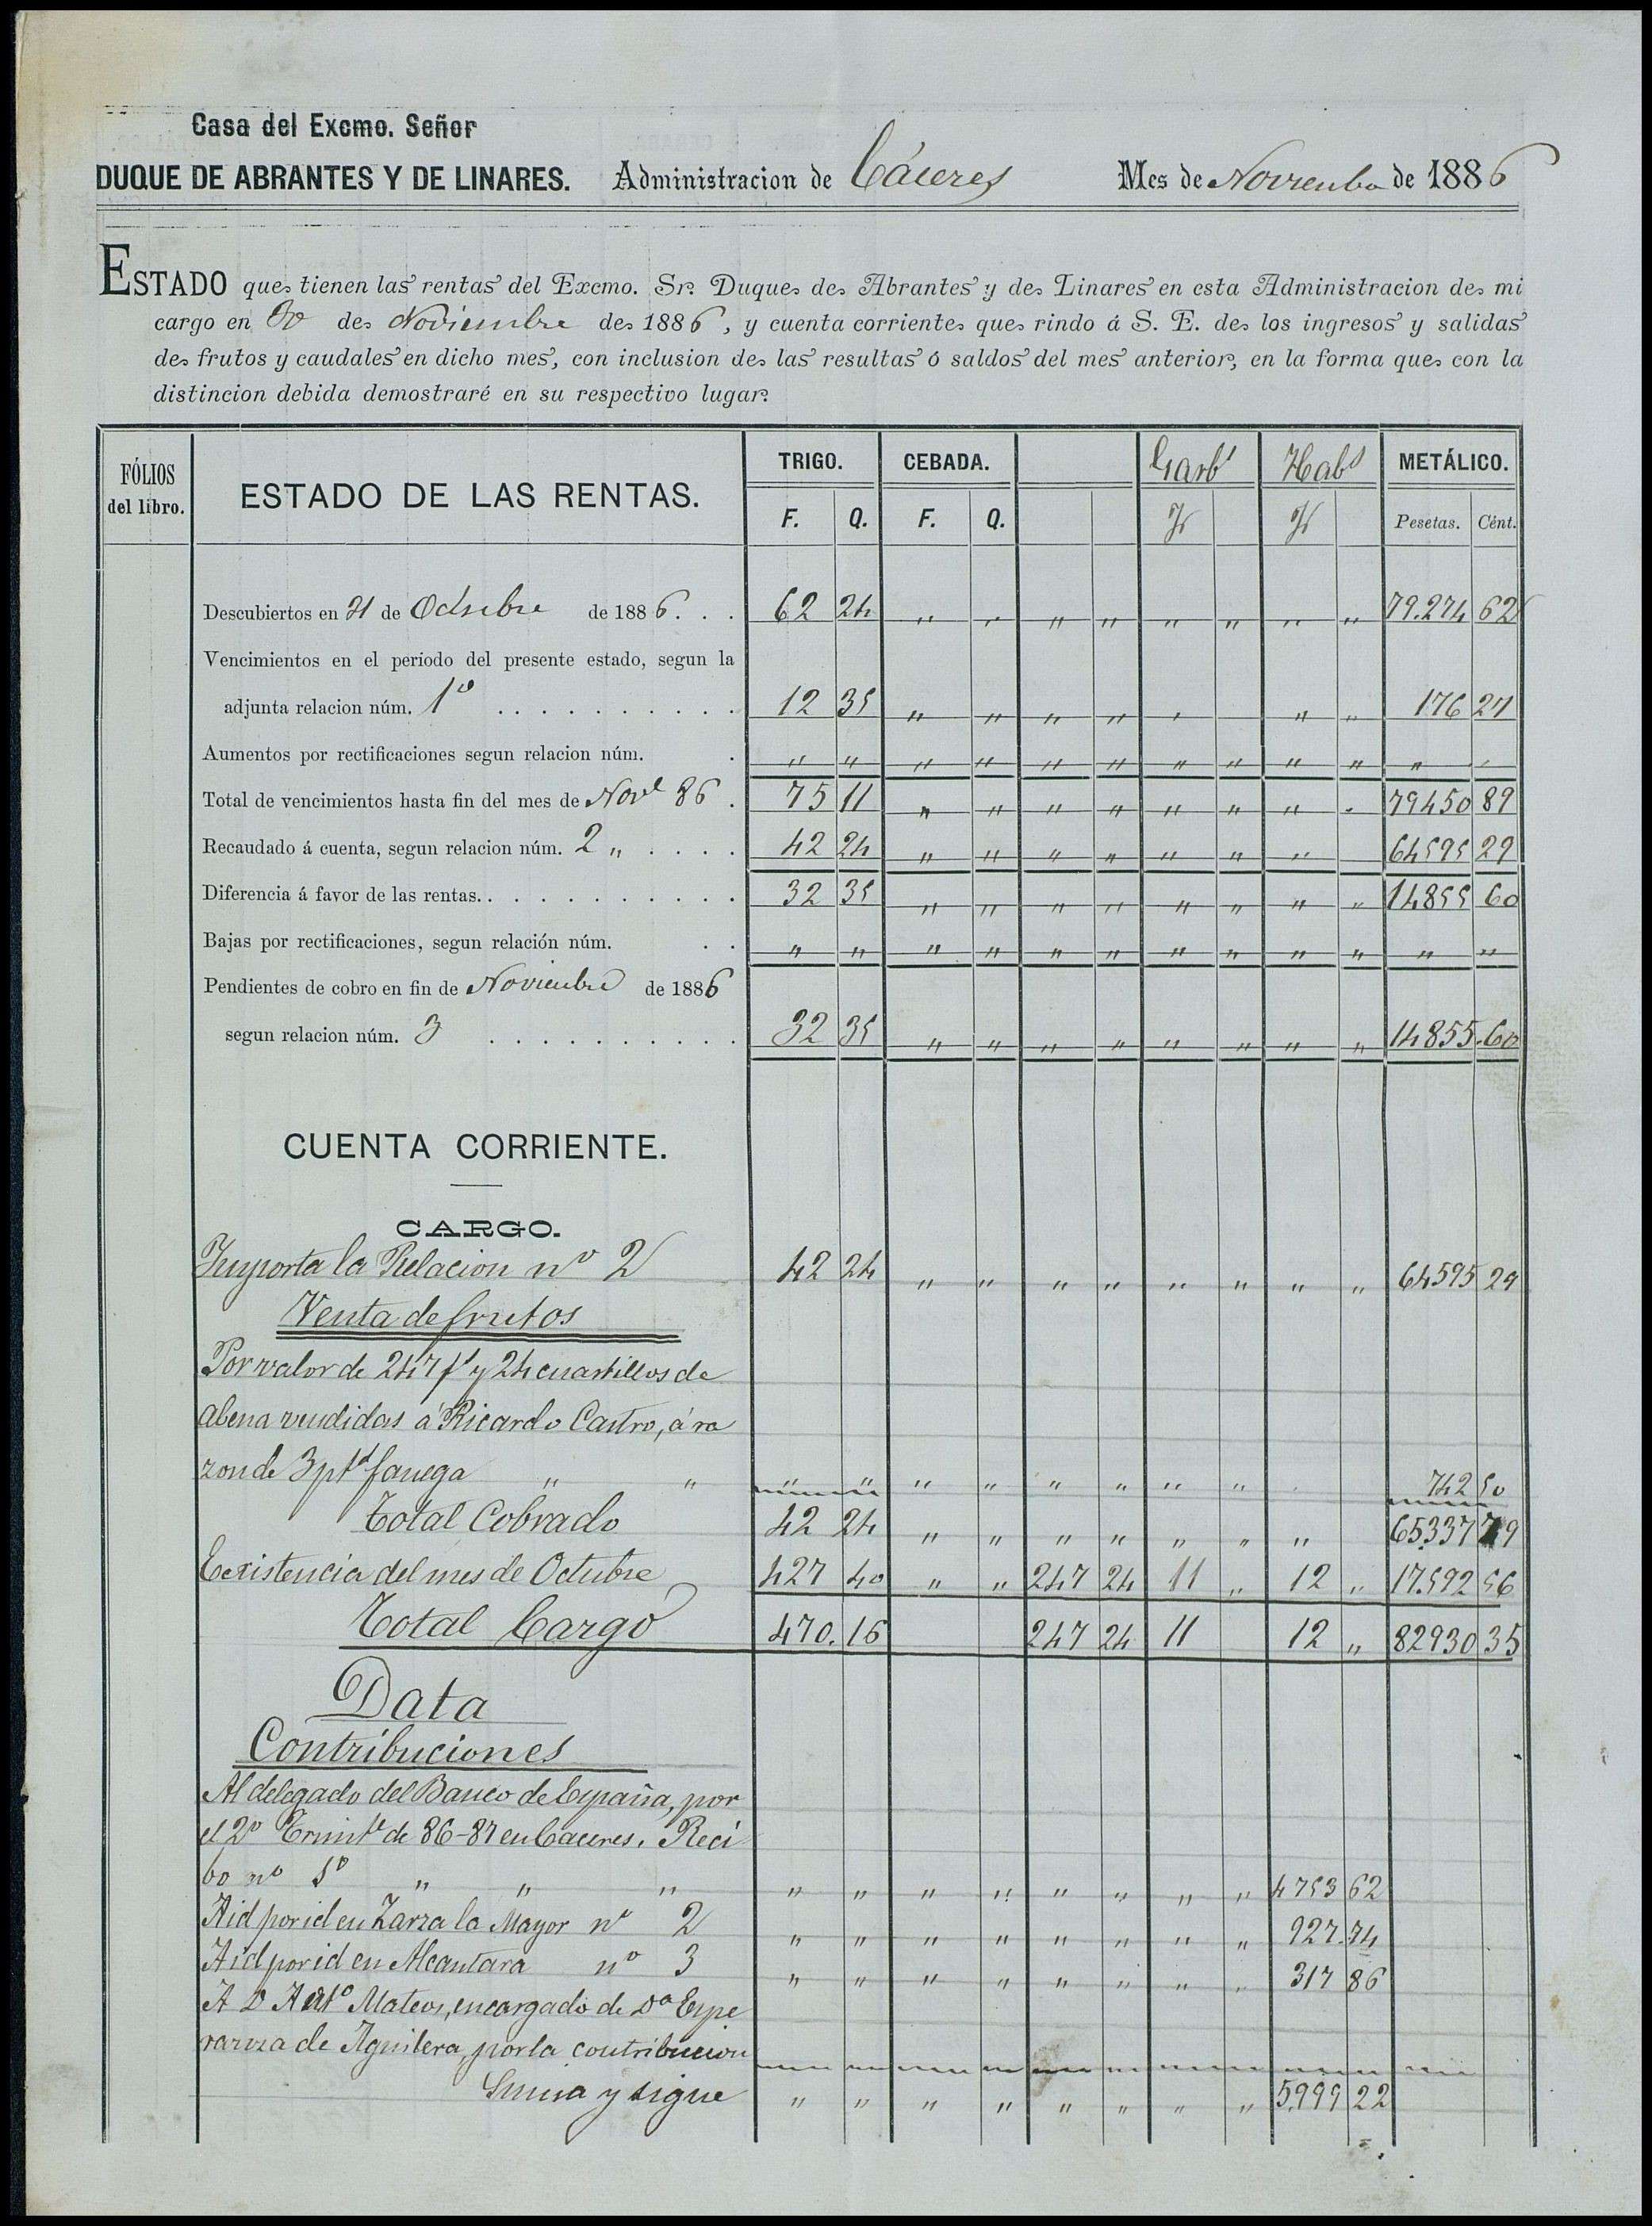 Casa del Excmo. Señor
DUQUE DE ABRANTES Y DE LINARES. Administracion de Cáceres Mes de Noviembre de 1886
ESTADO que tienen las rentas del Excmo. Sr. Duque de Abrantes y de Linares en esta Administracion de mi
cargo en 30 de Noviembre de 1886, y cuenta corriente que rindo á S. E. de los ingresos y salidas
de frutos y caudales en dicho mes, con inclusion de las resultas ó saldos del mes anterior, en la forma que con la
distincion debida demostraré en su respectivo lugar.
FÓLIOS del libro. ESTADO DE LAS RENTAS. TRIGO. CEBADA. Garbs Habs METÁLICO.
F. Q. F. Q. F F Pesetas. Cént.
Descubiertos en 31 de Octubre de 1886. . . 62 24 " " " " " " " " 79.274 62
Vencimientos en el período del presente estado, segun la
adjunta relacion núm. 1º . . . . . . . . . . 12 35 " " " " " " " 176 27
Aumentos por rectificaciones segun relacion núm. . " " " " " " " " " " " "
Total de vencimientos hasta fin del mes de Nove 86 . 75 11 " " " " " " " " 79450 89
Recaudado á cuenta, segun relacion núm. 2 " . . . . 42 24 " " " " " " " 64595 29
Diferencia á favor de las rentas. . . . . . . . . . . 32 35 " " " " " " " " 14855 60
Bajas por rectificaciones, segun relación núm. . . " " " " " " " " " " " "
Pendientes de cobro en fin de Noviembre de 1886
segun relacion núm. 3 . . . . . . . . . . 32 35 " " " " " " " " 14855.60
CUENTA CORRIENTE.
CARGO.
Importa la Relacion nº 2 42 24 " " " " " " " " 64595 29
Venta de frutos
Por valor de 247 fs y 24 cuartillos de
abena vendidas á Ricardo Castro, á ra
zon de 3 pts fanega " " " " " " " " " " 742 50
Total Cobrado 42 24 " " " " " " " 65.337 79
Existencia del mes de Octubre 427 40 " " 247 24 11 " 12 " 17.592 56
Total Cargo 470. 16 247 24 11 12 " 82930 35
Data
Contribuciones
Al delegado del Banco de España, por
el 2º Trimte de 86-87 en Caceres. Reci
bo nº 1º " " " " " " " " " " " 4753 62
A id por id en Zarza la Mayor nº 2 " " " " " " " " 927.74
A id por id en Alcantara nº 3 " " " " " " " " 317 86
A D Antº Mateos, encargado de Dª Espe
ranza de Aguilera, por la contribucion
Suma y sigue " " " " " " " " 5.999 22